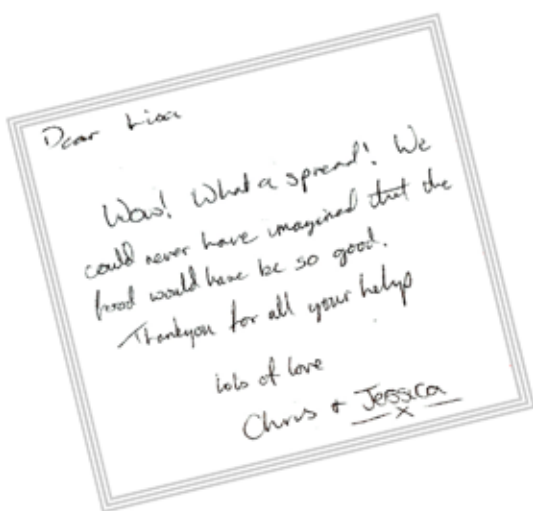 Dear Lisa
Wow! What a spread! We
could never have imagined that the
food would have be so good.
Thankyou for all your help
lots of love
Chris + Jessica
x